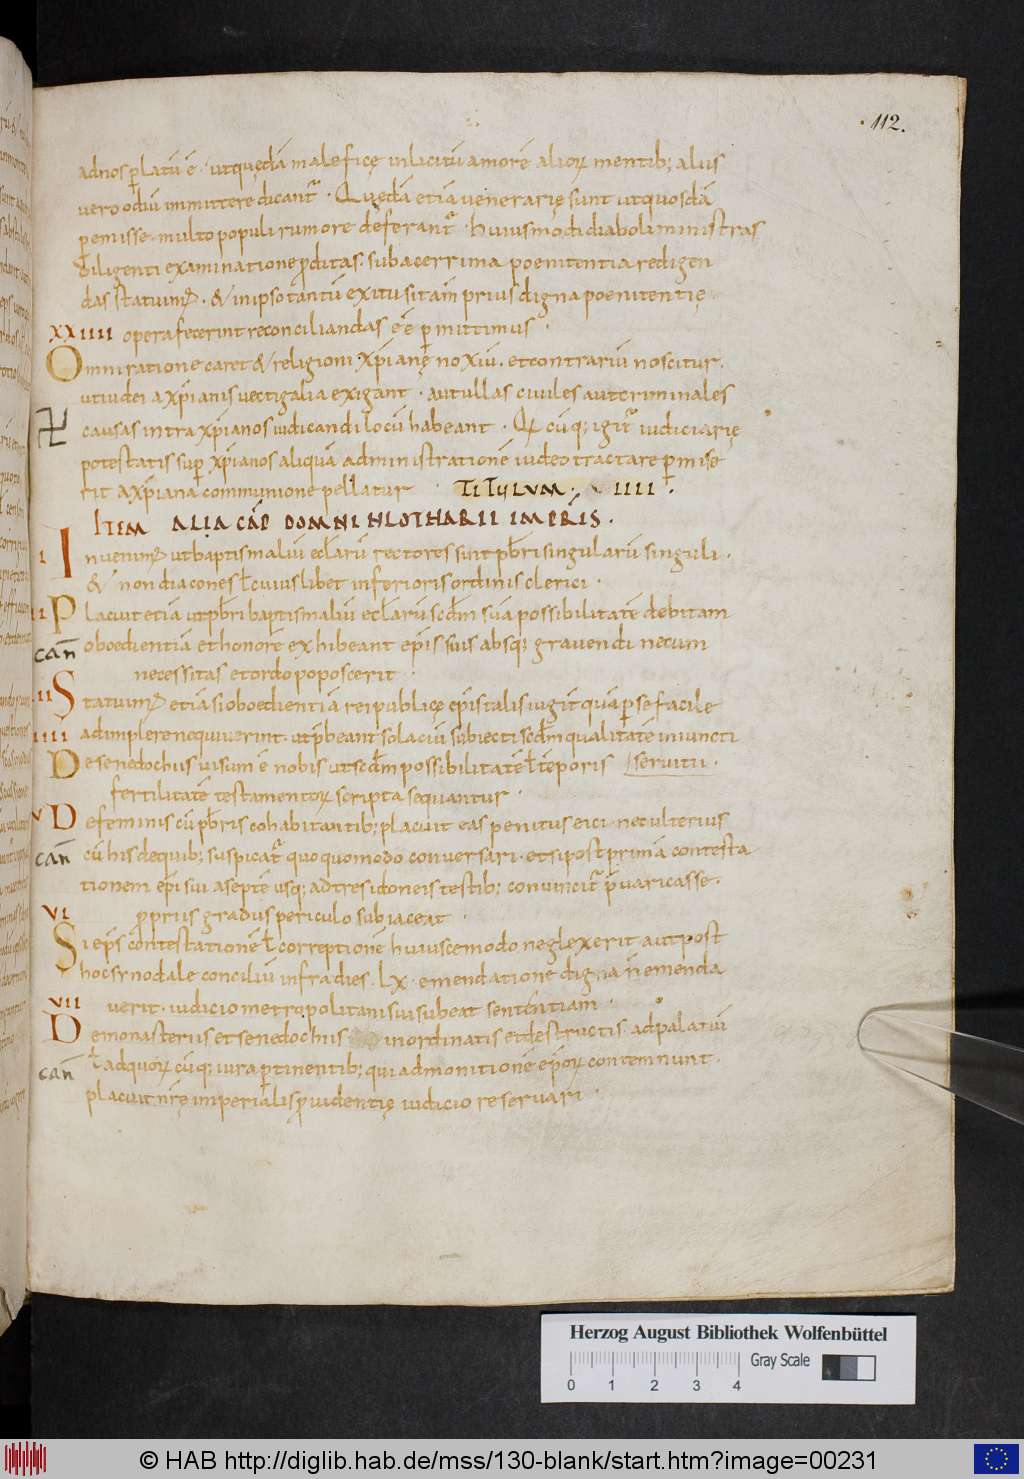 · 112.
ad nos p̱latū ē · ut quędā maleficę inlicitū amorē alioꝝ mentib; alus
vero odiū immittere dicantᷣ · Quędā etiā venerarię sunt ut quosdā
p̱emisse multo populi rumore deferantᷣ · huiusmodi diaboli ministras
diligenti examinatione ꝓditas · sub acerrima poenitentia redigen
das statuimꝰ · & in ipso tantū exitu si tam̄ prius digna poenitentię
XXIIII opera fecerint reconciliandas eē p̱mittimus ·
Omni ratione caret & religioni xp̄ianę noxiū · et contrariū noscitur ·
ut iudei a xp̄ianis vectigalia exigant · aut ullas ciuiles aut criminales
causas intra xp̄ianos iudicandi locū habeant · Qꝝ cūq; igitᷣ iudiciarię
potestatis sup̱ xp̄ianos aliquā administrationē iudeo tractare p̱mise
rit a xp̄iana communione pellatur · TITULUM · IIII ·
ITEM ALIA CAP̄ DOMNI HLOTHARII IMPR̄IS ·
I Inuenimꝰ ut baptismaliū ecl̄arū rectores sint pb̄ri singularū singuli ·
& non diacones ł cuiuslibet inferioris ordinis clerici ·
II Placuit etiā ut pb̄ri baptismaliū ecl̄arū scd̄m suā possibilitatē debitam
can̄ oboedientiā et honorē exhibeant ep̄is suis absq; grauendi necum
necessitas et ordo poposcerit ·
III Statuimꝰ etiā si oboedientiā rei publicę ep̄is talis iugit̄ quā p̱ se facile
IIII adimplere nequiuerint · ut p̄beant solaciū subiecti scd̄m qualitatē iniuncti
De senedochiis uisum ē nobis ut scd̄m possibilitatē ł tēporis seruitii ·
fertilitatē testamentoꝝ scripta sequantur ·
V De feminis cū pb̄ris cohabitantib; placuit eas penitus eici · nec ulterius
can̄ cū his de quib; suspicatᷣ quoquo modo conuersari · et si post primā contesta
tionem ep̄i sui a septē usq; ad tres idoneis testib; conuincitᷣ p̄uaricasse ·
VI proprius gradus periculo subiaceat ·
Si ep̄s contestationē ł correptionē huiuscemodo neglexerit aut post
hoc synodale conciliū infra dies · LX · emendatione digna n̄ emenda
VII uerit · iudicio metropolitani sui subeat sententiam ·
De monasteriis et senedochiis inordinatis et destructis · ad palatiū
can̄ ł ad quoꝝ cūq; iura p̱tinentib; qui admonitionē ep̄oꝝ contemnunt ·
placuit nr̄ę imperialis ꝓuidentię iudicio reseruari ·
Herzog August Bibliothek Wolfenbüttel
Gray Scale
0 1 2 3 4
© HAB http://diglib.hab.de/mss/130-blank/start.htm?image=00231